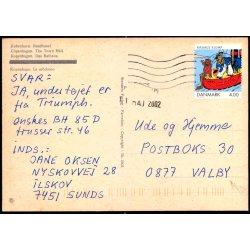 København: Raadhuset
Copenhagen: The Town Hall
Kopenhagen: Das Rathaus
SVAR:
JA, undertøjet er
fra Triumph.
ønskes BH 85D
trusser str. 46
INDS.:
JANE OKSEN
NYSKOVVEJ 28
ILSKOV
7451 SUNDS
RASMUS KLUMP
DANMARK 4,00
2002
Ude og Hjemme
POSTBOKS 30
0877 VALBY